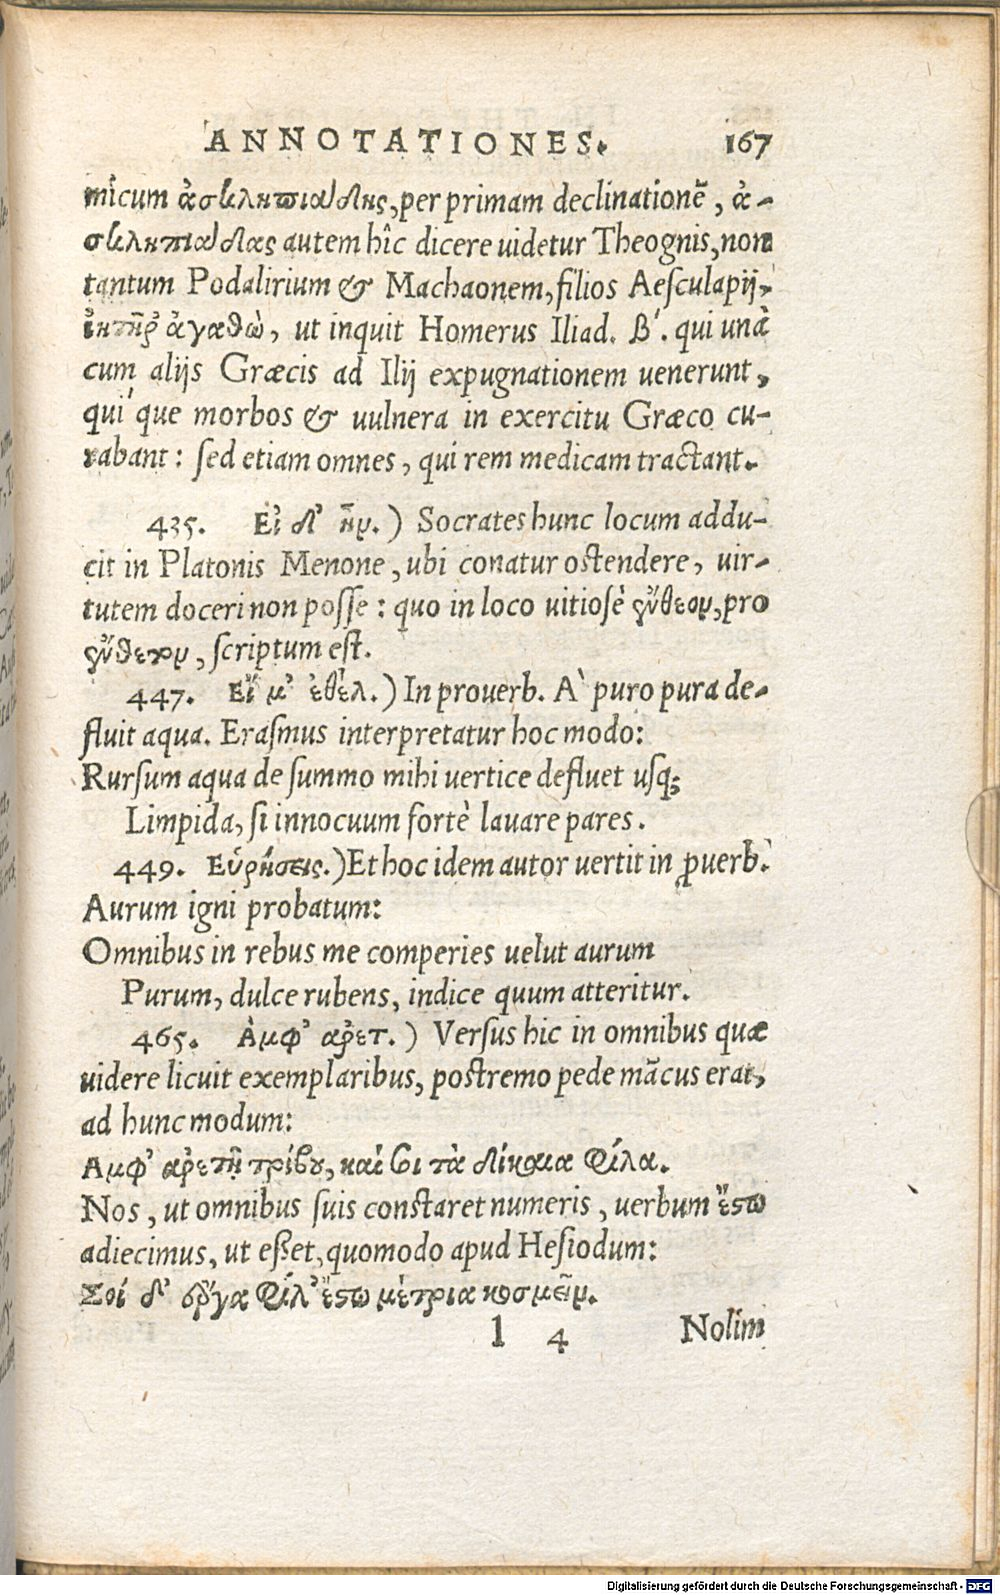 ANNOTATIONES. 167
micum ἀσκληπιάδης, per primam declinationẽ, ἀ-
σκληπιάδας autem hîc dicere uidetur Theognis, non
tantum Podalirium & Machaonem, filios Aesculapij,
ἰητῆρ' ἀγαθὼ, ut inquit Homerus Iliad. β'. qui unà
cum alijs Græcis ad Ilij expugnationem uenerunt,
qui'que morbos & uulnera in exercitu Græco cu-
rabant: sed etiam omnes, qui rem medicam tractant.
435. Εἰ δ' ἦν.) Socrates hunc locum addu-
cit in Platonis Menone, ubi conatur ostendere, uir-
tutem doceri non posse: quo in loco uitiosè γ' ἔνθεον, pro
γ' ἔνθετον, scriptum est.
447. Εἴ μ' ἐθέλ.) In prouerb. A' puro pura de-
fluit aqua. Erasmus interpretatur hoc modo:
Rursum aqua de summo mihi uertice defluet usq;
Limpida, si innocuum fortè lauare pares.
449. Εὑρήσεις.) Et hoc idem autor uertit in ꝓuerb.
Aurum igni probatum:
Omnibus in rebus me comperies uelut aurum
Purum, dulce rubens, indice quum atteritur.
465. Ἀμφ' ἀρετ.) Versus hic in omnibus quæ
uidere licuit exemplaribus, postremo pede mãcus erat,
ad hunc modum:
Ἀμφ' ἀρετῇ τρίβου, καί σοι τὰ δίκαια φίλα.
Nos, ut omnibus suis constaret numeris, uerbum ἔστω
adiecimus, ut esset, quomodo apud Hesiodum:
Σοί δ' ἔργα φίλ' ἔστω μέτρια κοσμεῖν.
l 4 Nolim
Digitalisierung gefördert durch die Deutsche Forschungsgemeinschaft - DFG